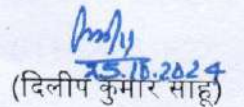 25.10.2024
(दिलीप कुमार साहू)